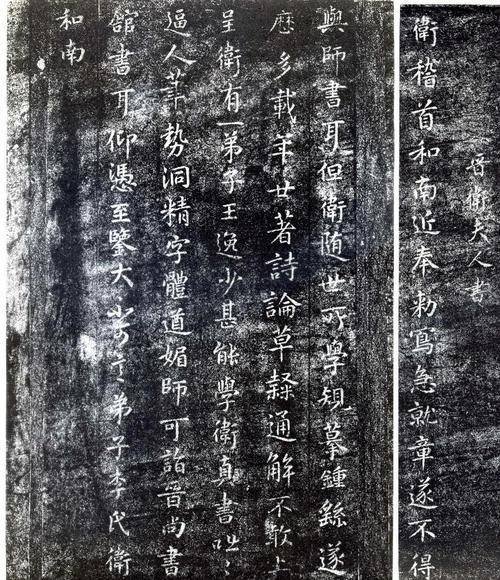 晉衛夫人書
衛稽首和南近奉勅寫急就章遂不得
與師書耳但衛随世所學規摹鍾繇遂
歷多載年廿著詩論草隸通解不敢上
呈衛有一弟子王逸少甚能學衛真書咄〻
逼人筆勢洞精字體遒媚師可詣晉尚書
舘書耳仰憑至鑒大不可言弟子李氏衛
和南